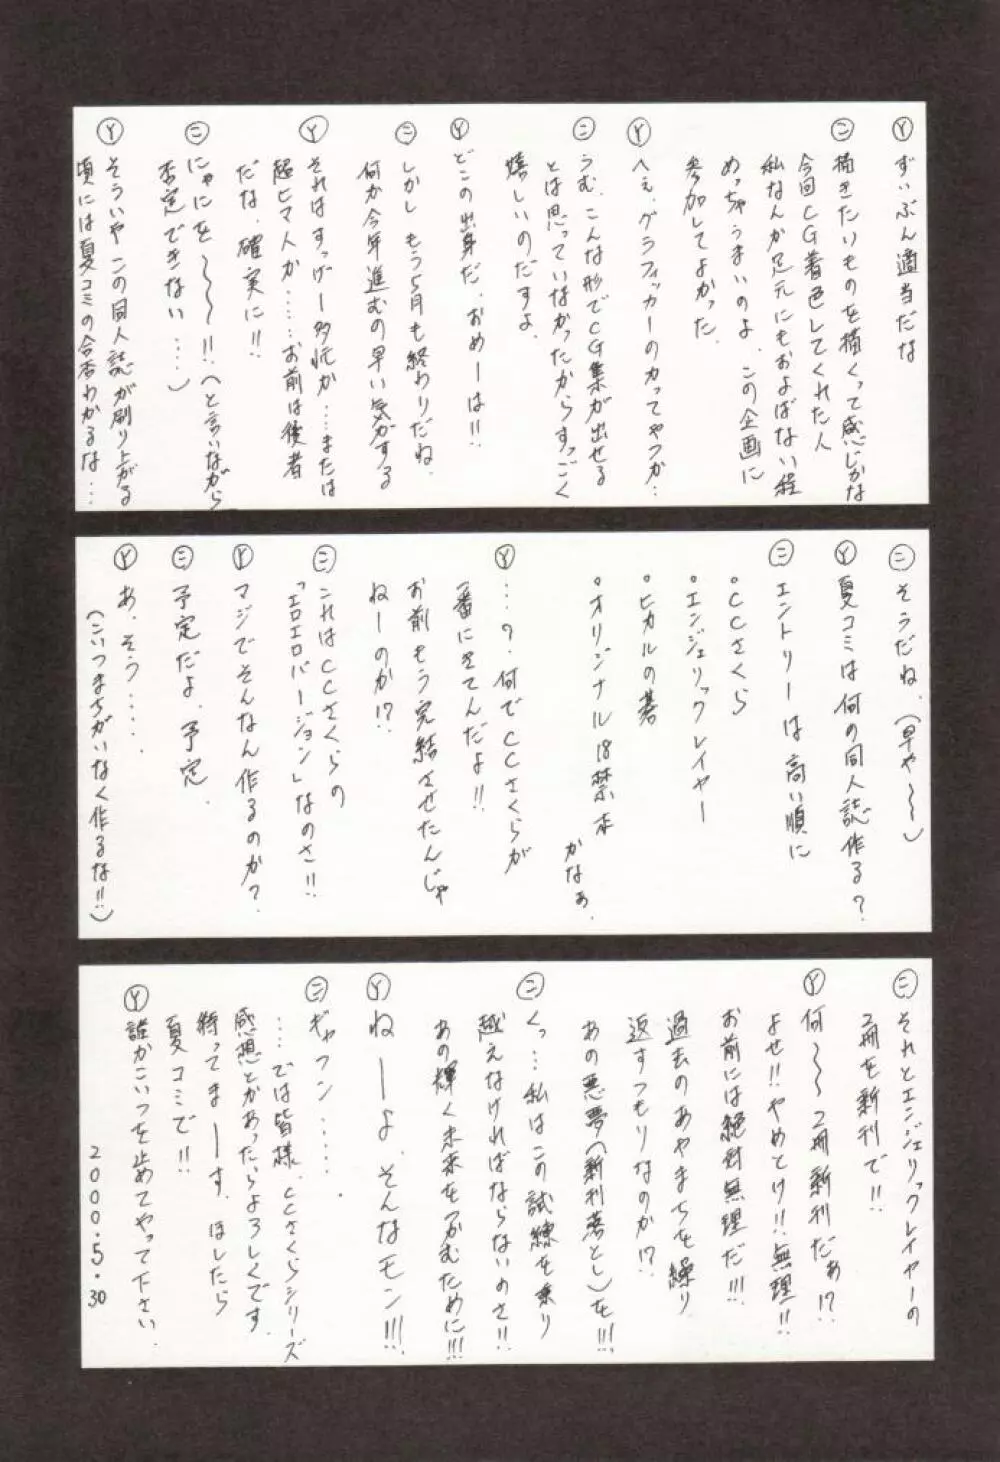 Ⓨ ずいぶん適当だな
㊁ 描きたいものを描くって感じかな
今回CG着色してくれた人
私なんか足元にもおよばない程
めっちゃうまいのよ、この企画に
参加してよかった。
Ⓨ へぇ、グラフィッカーのカってやつか…
㊁ うむ、こんな形でCG集が出せる
とは思っていなかったからすっごく
嬉しいのだすよ。
Ⓨ どこの出身だ、おめーは!!
㊁ しかし もう5月も終わりだね、
何か今年進むの早い気がする
Ⓨ それはすっげー多忙か……または
超ヒマ人か……お前は後者
だな、確実に!!
㊁ にゃにを〜〜〜!!(と言いながら
否定できない……)
Ⓨ そういや この同人誌が刷り上がる
頃には夏コミの合否わかるな…
㊁ そうだね、(早や〜〜)
Ⓨ 夏コミは何の同人誌作る?
㊁ エントリーは高い順に
・CCさくら
・エンジェリックレイヤー
・ヒカルの碁
・オリジナル18禁本
かなぁ。
Ⓨ …?何でCCさくらが
一番にきてんだよ!!
お前もう完結させたんじゃ
ねーのか!?
㊁ これはCCさくらの
「エロエロバージョン」なのさ!!
Ⓨ マジでそんなん作るのか?
㊁ 予定だよ、予定、
Ⓨ あ、そう……
(こいつまちがいなく作るな!!)
㊁ それとエンジェリックレイヤーの
2冊を新刊で!!
Ⓨ 何〜〜2冊新刊だぁ!?
よせ!!やめとけ!!無理!!
お前には絶対無理だ!!!
過去のあやまちを繰り
返すつもりなのか!?
あの悪夢(新刊落とし)を!!!
㊁ くっ…私はこの試練を乗り
越えなければならないのさ!!
あの輝く未来をつかむために!!!
Ⓨ ねーーよ、そんなモン!!!
㊁ ギャフン……
……では皆様、CCさくらシリーズ
感想とかあったらよろしくです。
待ってまーーす。ほしたら
夏コミで!!
Ⓨ 誰かこいつを止めてやって下さい、
2000.5.30